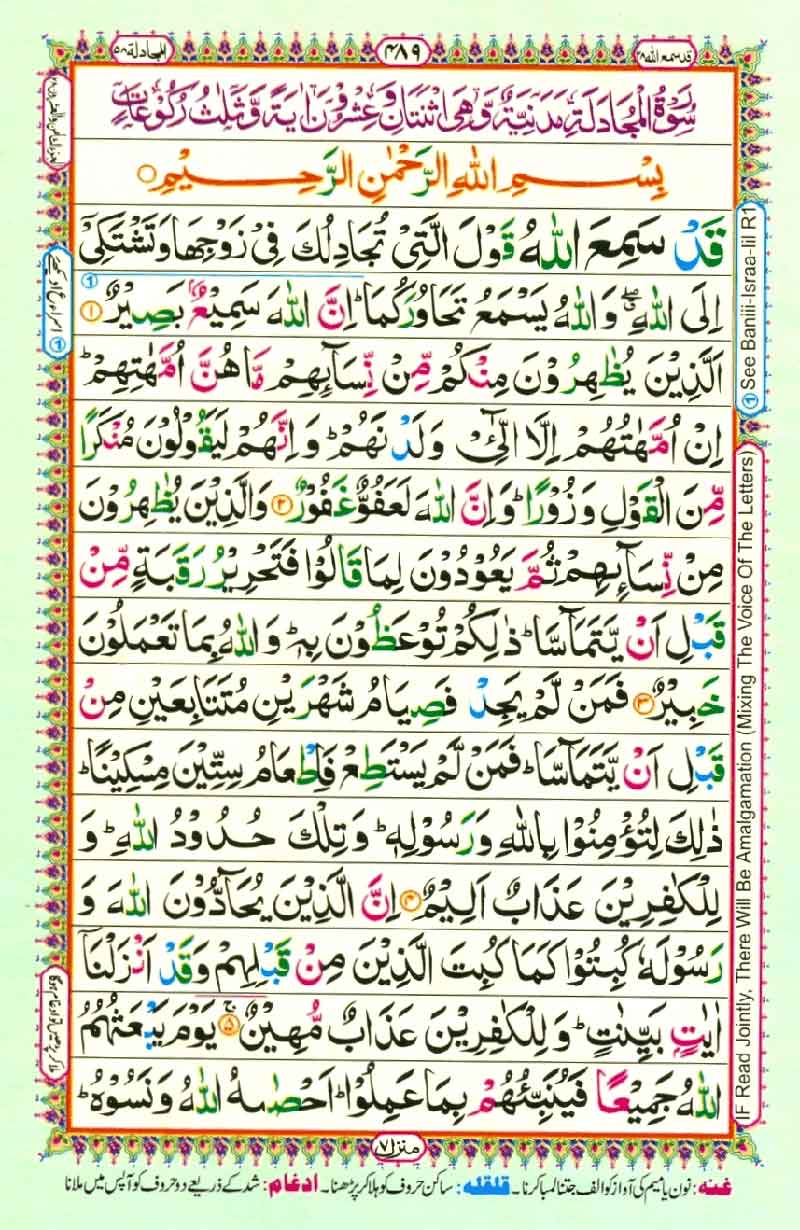 قد سمع الله ٢٨
٤٨٩
المجادلة ٥٨
سُوْرَةُ الْمُجَادَلَةِ مَدَنِيَّةٌ وَّهِىَ اثْنَتَانِ وَعِشْرُوْنَ اٰيَةً وَّثَلٰثُ رُكُوْعَاتٍ
بِسْمِ اللّٰهِ الرَّحْمٰنِ الرَّحِيْمِ ○
قَدْ سَمِعَ اللّٰهُ قَوْلَ الَّتِىْ تُجَادِلُكَ فِىْ زَوْجِهَا وَتَشْتَكِىْٓ
اِلَى اللّٰهِ ۖۗ وَاللّٰهُ يَسْمَعُ تَحَاوُرَكُمَا ؕ اِنَّ اللّٰهَ سَمِيْعٌۢ بَصِيْرٌ ﴿۱﴾
اَلَّذِيْنَ يُظٰهِرُوْنَ مِنْكُمْ مِّنْ نِّسَآىِٕهِمْ مَّا هُنَّ اُمَّهٰتِهِمْ ؕ
اِنْ اُمَّهٰتُهُمْ اِلَّا الّٰٓـِٔىْ وَلَدْنَهُمْ ؕ وَاِنَّهُمْ لَيَقُوْلُوْنَ مُنْكَرًا
مِّنَ الْقَوْلِ وَزُوْرًا ؕ وَاِنَّ اللّٰهَ لَعَفُوٌّ غَفُوْرٌ ﴿۲﴾ وَالَّذِيْنَ يُظٰهِرُوْنَ
مِنْ نِّسَآىِٕهِمْ ثُمَّ يَعُوْدُوْنَ لِمَا قَالُوْا فَتَحْرِيْرُ رَقَبَةٍ مِّنْ
قَبْلِ اَنْ يَّتَمَآسَّا ؕ ذٰلِكُمْ تُوْعَظُوْنَ بِهٖ ؕ وَاللّٰهُ بِمَا تَعْمَلُوْنَ
خَبِيْرٌ ﴿۳﴾ فَمَنْ لَّمْ يَجِدْ فَصِيَامُ شَهْرَيْنِ مُتَتَابِعَيْنِ مِنْ
قَبْلِ اَنْ يَّتَمَآسَّا ؕ فَمَنْ لَّمْ يَسْتَطِعْ فَاِطْعَامُ سِتِّيْنَ مِسْكِيْنًا ؕ
ذٰلِكَ لِتُؤْمِنُوْا بِاللّٰهِ وَرَسُوْلِهٖ ؕ وَتِلْكَ حُدُوْدُ اللّٰهِ ؕ وَ
لِلْكٰفِرِيْنَ عَذَابٌ اَلِيْمٌ ﴿۴﴾ اِنَّ الَّذِيْنَ يُحَآدُّوْنَ اللّٰهَ وَ
رَسُوْلَهٗ كُبِتُوْا كَمَا كُبِتَ الَّذِيْنَ مِنْ قَبْلِهِمْ وَقَدْ اَنْزَلْنَآ
اٰيٰتٍۭ بَيِّنٰتٍ ؕ وَلِلْكٰفِرِيْنَ عَذَابٌ مُّهِيْنٌ ﴿۵﴾ۚ يَوْمَ يَبْعَثُهُمُ
اللّٰهُ جَمِيْعًا فَيُنَبِّئُهُمْ بِمَا عَمِلُوْا ؕ اَحْصٰىهُ اللّٰهُ وَنَسُوْهُ ؕ
منزل ۷
① See Baniii-Israa-Iil R1
IF Read Jointly, There Will Be Amalgamation (Mixing The Voice Of The Letters)
ملا کر پڑھیں تو ادغام ہوگا
غنه : نون یا میم کی آواز کو الف جتنا لمبا کرنا ۔ قلقله : ساکن حروف کو ہلا کر پڑھنا ۔ ادغام : شد کے ذریعے دو حروف کو آپس میں ملانا